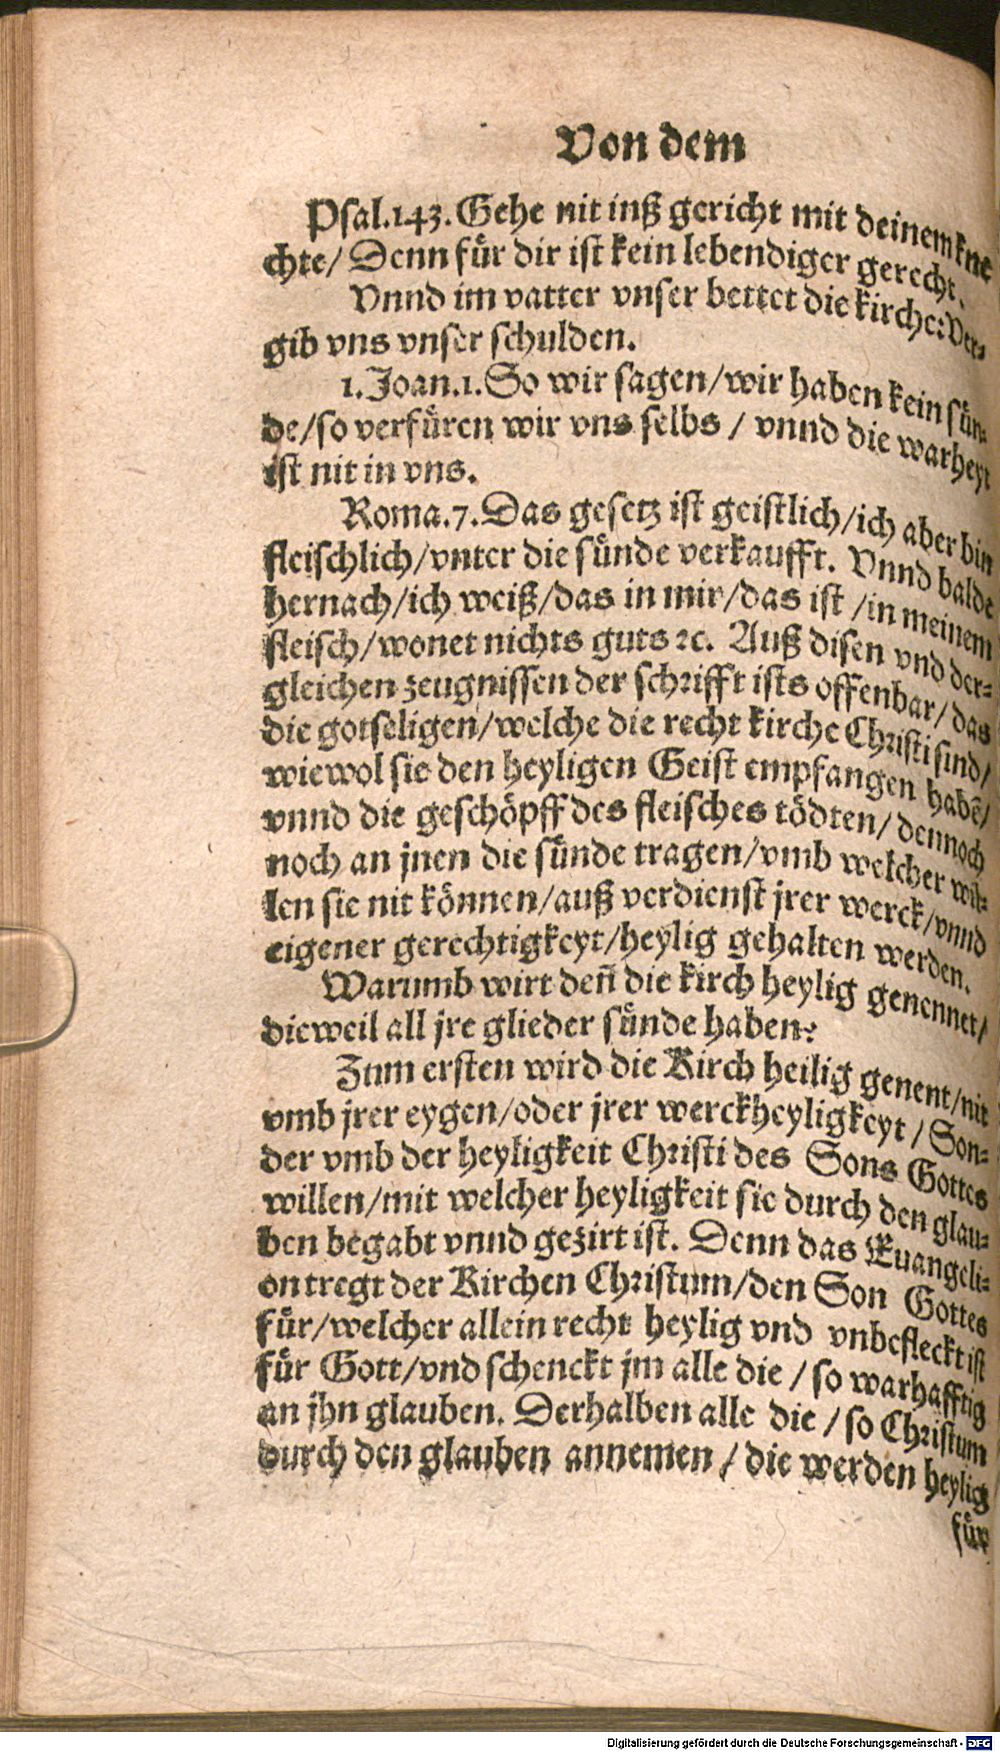 Von dem
Psal.143. Gehe nit inß gericht mit deinem kne
chte/ Denn fuͤr dir ist kein lebendiger gerecht.
Vnnd im vatter vnser bettet die kirche: Ver-
gib vns vnser schulden.
1. Joan.1. So wir sagen/wir haben kein suͤn-
de/so verfuͤren wir vns selbs / vnnd die warheyt
ist nit in vns.
Roma.7. Das gesetz ist geistlich/ich aber bin
fleischlich/vnter die suͤnde verkaufft. Vnnd balde
hernach/ich weiß/das in mir/das ist /in meinem
fleisch/wonet nichts guts ꝛc. Auß disen vnd der-
gleichen zeugnissen der schrifft ists offenbar/ das
die gotseligen/welche die recht kirche Christi sind/
wiewol sie den heyligen Geist empfangen habẽ/
vnnd die geschoͤpff des fleisches toͤdten/ dennoch
noch an jnen die suͤnde tragen/vmb welcher wil-
len sie nit koͤnnen/auß verdienst jrer werck/vnnd
eigener gerechtigkeyt/heylig gehalten werden.
Warumb wirt deñ die kirch heylig genennet/
dieweil all jre glieder suͤnde haben?
Zum ersten wird die Kirch heilig genent/nit
vmb jrer eygen/oder jrer werckheyligkeyt / Son-
der vmb der heyligkeit Christi des Sons Gottes
willen/mit welcher heyligkeit sie durch den glau-
ben begabt vnnd gezirt ist. Denn das Euangeli-
on tregt der Kirchen Christum/den Son Gottes
fuͤr/welcher allein recht heylig vnd vnbefleckt ist
fuͤr Gott/vnd schenckt jm alle die / so warhafftig
an jhn glauben. Derhalben alle die / so Christum
durch den glauben annemen / die werden heylig
fuͤr
Digitalisierung gefördert durch die Deutsche Forschungsgemeinschaft - DFG